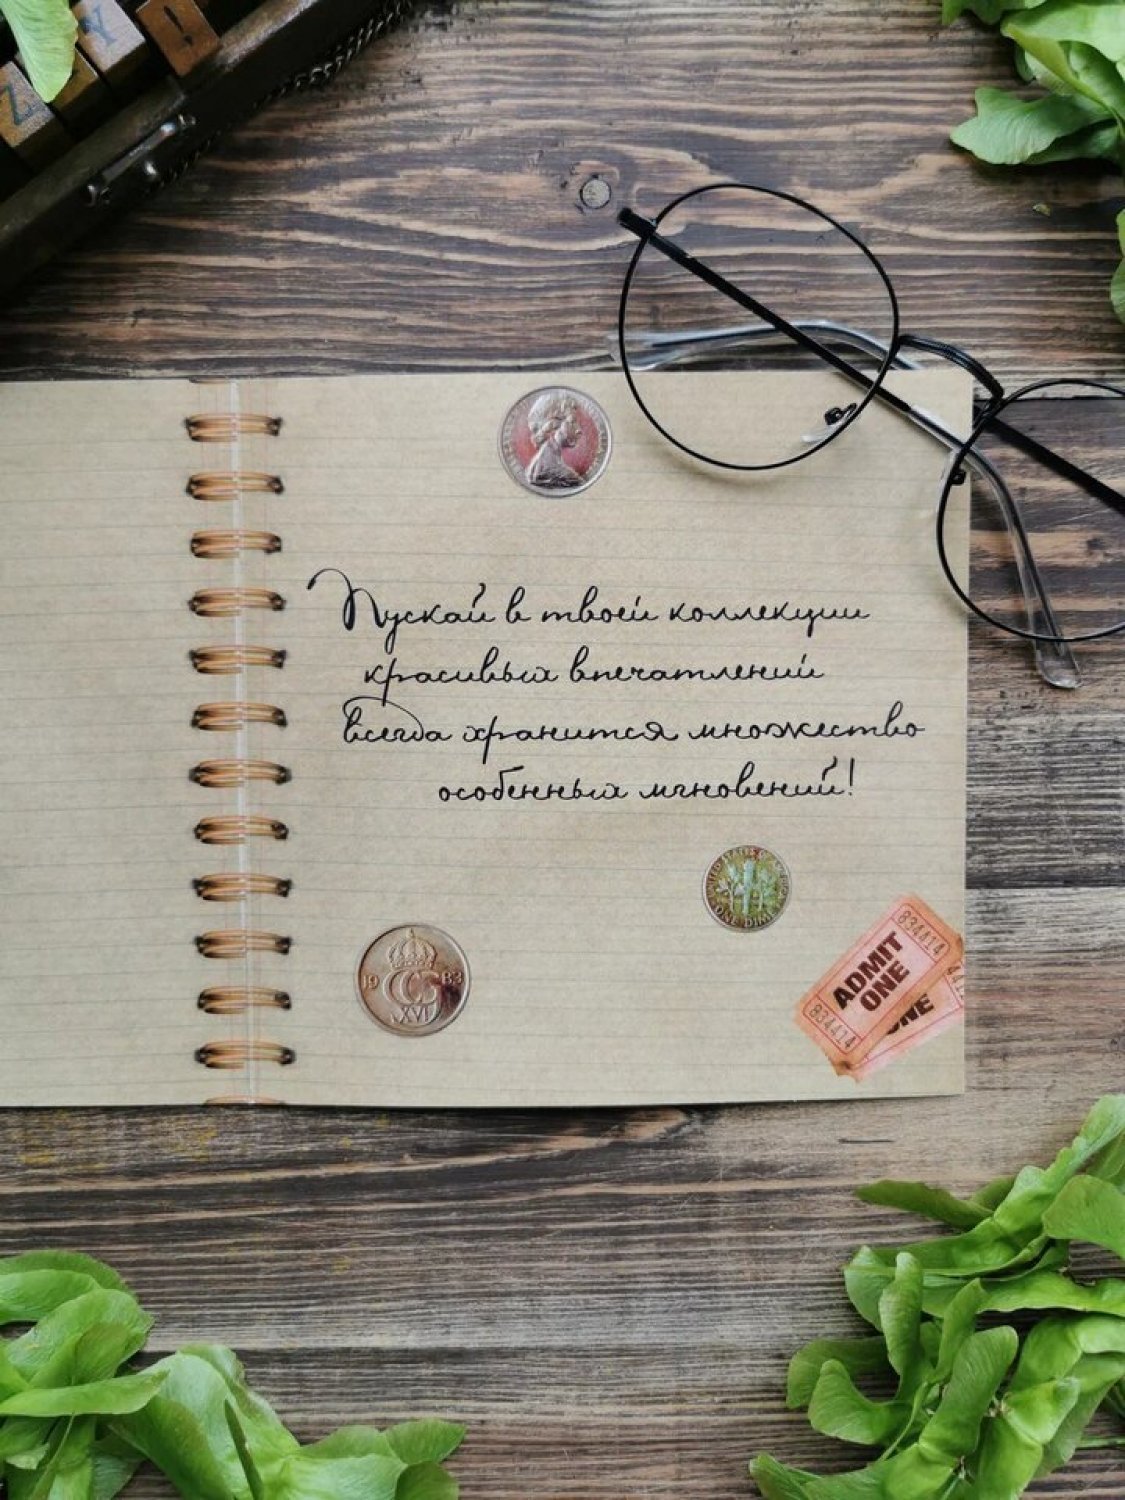 Z Y !
Пускай в твоей коллекции
красивых впечатлений
всегда хранится множество
особенных мгновений!
UNITED STATES OF AMERICA
ONE DIME
19 83
CG
XVI
834414
ADMIT
ONE
834414
ONE